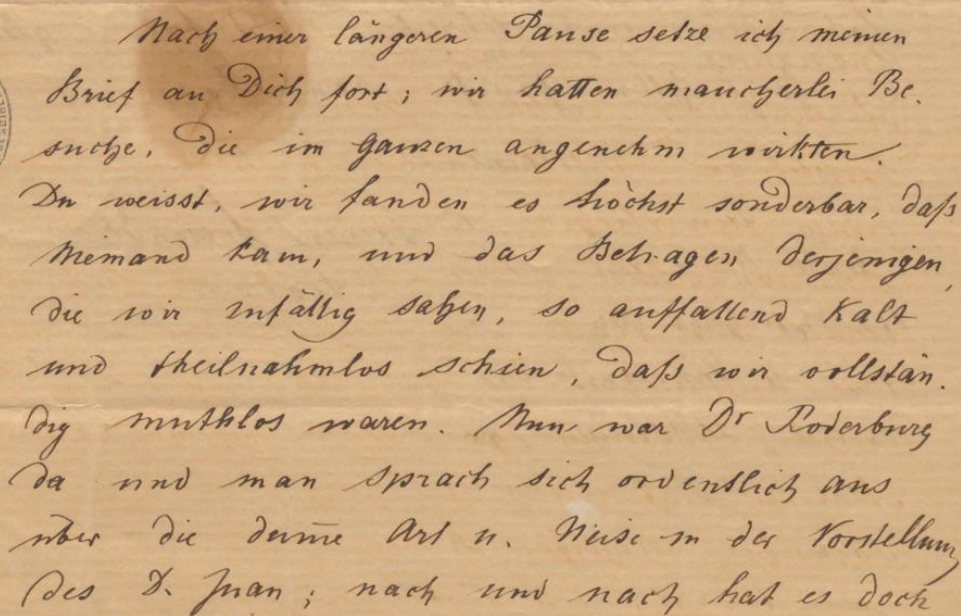 Nach einer längeren Pause setze ich meinen
Brief an Dich fort; wir hatten mancherlei Be-
suche, die im ganzen angenehm wirkten.
Du weisst, wir fanden es höchst sonderbar, daß
Niemand kam, und das Betragen derjenigen,
die wir zufällig sahen, so auffallend kalt
und theilnahmlos schien, daß wir vollstän-
dig muthlos waren. Nun war Dr Roderburg
da und man sprach sich ordentlich aus
über die dum̅e Art u. Weise in der Vorstellung
des D. Juan; nach und nach hat es doch